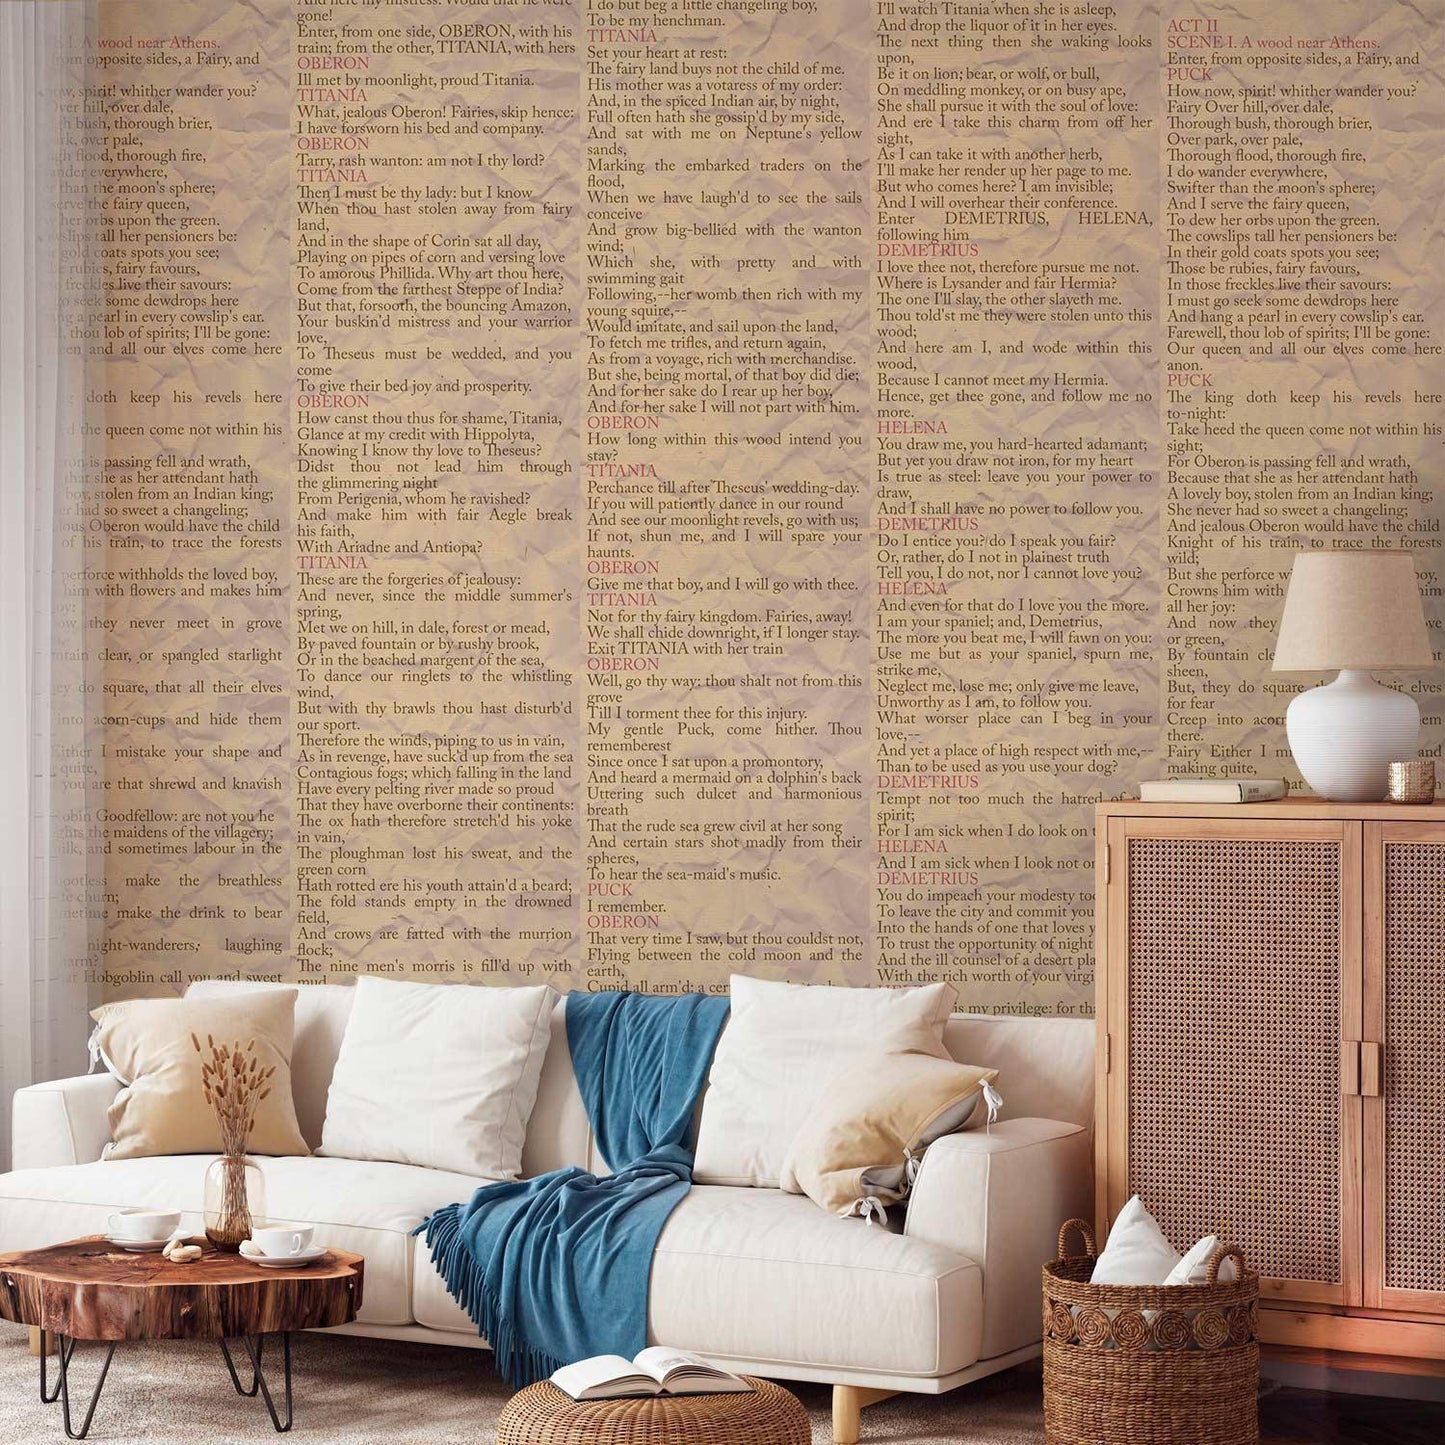 I. A wood near Athens.
opposite sides, a Fairy, and
spirit! whither wander you?
hill, over dale,
bush, thorough brier,
over pale,
flood, thorough fire,
everywhere,
than the moon's sphere;
serve the fairy queen,
her orbs upon the green.
tall her pensioners be:
gold coats spots you see;
rubies, fairy favours,
freckles live their savours:
seek some dewdrops here
a pearl in every cowslip's ear.
thou lob of spirits; I'll be gone:
and all our elves come here
doth keep his revels here
the queen come not within his
is passing fell and wrath,
that she as her attendant hath
boy, stolen from an Indian king;
had so sweet a changeling;
Oberon would have the child
of his train, to trace the forests
perforce withholds the loved boy,
him with flowers and makes him
joy:
they never meet in grove
clear, or spangled starlight
do square, that all their elves
into acorn-cups and hide them
Either I mistake your shape and
quite,
you are that shrewd and knavish
Goodfellow: are not you he
the maidens of the villagery;
and sometimes labour in the
make the breathless
churn;
make the drink to bear
night-wanderers, laughing
Hobgoblin call you and sweet
And here my mistress. Would that he were
gone!
Enter, from one side, OBERON, with his
train; from the other, TITANIA, with hers
OBERON
Ill met by moonlight, proud Titania.
TITANIA
What, jealous Oberon! Fairies, skip hence:
I have forsworn his bed and company.
OBERON
Tarry, rash wanton: am not I thy lord?
TITANIA
Then I must be thy lady: but I know
When thou hast stolen away from fairy
land,
And in the shape of Corin sat all day,
Playing on pipes of corn and versing love
To amorous Phillida. Why art thou here,
Come from the farthest Steppe of India?
But that, forsooth, the bouncing Amazon,
Your buskin'd mistress and your warrior
love,
To Theseus must be wedded, and you
come
To give their bed joy and prosperity.
OBERON
How canst thou thus for shame, Titania,
Glance at my credit with Hippolyta,
Knowing I know thy love to Theseus?
Didst thou not lead him through
the glimmering night
From Perigenia, whom he ravished?
And make him with fair Aegle break
his faith,
With Ariadne and Antiopa?
TITANIA
These are the forgeries of jealousy:
And never, since the middle summer's
spring,
Met we on hill, in dale, forest or mead,
By paved fountain or by rushy brook,
Or in the beached margent of the sea,
To dance our ringlets to the whistling
wind,
But with thy brawls thou hast disturb'd
our sport.
Therefore the winds, piping to us in vain,
As in revenge, have suck'd up from the sea
Contagious fogs; which falling in the land
Have every pelting river made so proud
That they have overborne their continents:
The ox hath therefore stretch'd his yoke
in vain,
The ploughman lost his sweat, and the
green corn
Hath rotted ere his youth attain'd a beard;
The fold stands empty in the drowned
field,
And crows are fatted with the murrion
flock;
The nine men's morris is fill'd up with
mud
I do but beg a little changeling boy,
To be my henchman.
TITANIA
Set your heart at rest:
The fairy land buys not the child of me.
His mother was a votaress of my order:
And, in the spiced Indian air, by night,
Full often hath she gossip'd by my side,
And sat with me on Neptune's yellow
sands,
Marking the embarked traders on the
flood,
When we have laugh'd to see the sails
conceive
And grow big-bellied with the wanton
wind;
Which she, with pretty and with
swimming gait
Following,--her womb then rich with my
young squire,--
Would imitate, and sail upon the land,
To fetch me trifles, and return again,
As from a voyage, rich with merchandise.
But she, being mortal, of that boy did die;
And for her sake do I rear up her boy,
And for her sake I will not part with him.
OBERON
How long within this wood intend you
stay?
TITANIA
Perchance till after Theseus' wedding-day.
If you will patiently dance in our round
And see our moonlight revels, go with us;
If not, shun me, and I will spare your
haunts.
OBERON
Give me that boy, and I will go with thee.
TITANIA
Not for thy fairy kingdom. Fairies, away!
We shall chide downright, if I longer stay.
Exit TITANIA with her train
OBERON
Well, go thy way: thou shalt not from this
grove
Till I torment thee for this injury.
My gentle Puck, come hither. Thou
rememberest
Since once I sat upon a promontory,
And heard a mermaid on a dolphin's back
Uttering such dulcet and harmonious
breath
That the rude sea grew civil at her song
And certain stars shot madly from their
spheres,
To hear the sea-maid's music.
PUCK
I remember.
OBERON
That very time I saw, but thou couldst not,
Flying between the cold moon and the
earth,
Cupid all arm'd: a
I'll watch Titania when she is asleep,
And drop the liquor of it in her eyes.
The next thing then she waking looks
upon,
Be it on lion; bear, or wolf, or bull,
On meddling monkey, or on busy ape,
She shall pursue it with the soul of love:
And ere I take this charm from off her
sight,
As I can take it with another herb,
I'll make her render up her page to me.
But who comes here? I am invisible;
And I will overhear their conference.
Enter DEMETRIUS, HELENA,
following him
DEMETRIUS
I love thee not, therefore pursue me not.
Where is Lysander and fair Hermia?
The one I'll slay, the other slayeth me.
Thou told'st me they were stolen unto this
wood;
And here am I, and wode within this
wood,
Because I cannot meet my Hermia.
Hence, get thee gone, and follow me no
more.
HELENA
You draw me, you hard-hearted adamant;
But yet you draw not iron, for my heart
Is true as steel: leave you your power to
draw,
And I shall have no power to follow you.
DEMETRIUS
Do I entice you? do I speak you fair?
Or, rather, do I not in plainest truth
Tell you, I do not, nor I cannot love you?
HELENA
And even for that do I love you the more.
I am your spaniel; and, Demetrius,
The more you beat me, I will fawn on you:
Use me but as your spaniel, spurn me,
strike me,
Neglect me, lose me; only give me leave,
Unworthy as I am, to follow you.
What worser place can I beg in your
love,--
And yet a place of high respect with me,--
Than to be used as you use your dog?
DEMETRIUS
Tempt not too much the hatred of
spirit;
For I am sick when I do look on
HELENA
And I am sick when I look not
DEMETRIUS
You do impeach your modesty
To leave the city and commit
Into the hands of one that loves
To trust the opportunity of night
And the ill counsel of a desert
With the rich worth of your
is my privilege: for
ACT II
SCENE I. A wood near Athens.
Enter, from opposite sides, a Fairy, and
PUCK
How now, spirit! whither wander you?
Fairy Over hill, over dale,
Thorough bush, thorough brier,
Over park, over pale,
Thorough flood, thorough fire,
I do wander everywhere,
Swifter than the moon's sphere;
And I serve the fairy queen,
To dew her orbs upon the green.
The cowslips tall her pensioners be:
In their gold coats spots you see;
Those be rubies, fairy favours,
In those freckles live their savours:
I must go seek some dewdrops here
And hang a pearl in every cowslip's ear.
Farewell, thou lob of spirits; I'll be gone:
Our queen and all our elves come here
anon.
PUCK
The king doth keep his revels here
to-night:
Take heed the queen come not within his
sight;
For Oberon is passing fell and wrath,
Because that she as her attendant hath
A lovely boy, stolen from an Indian king;
She never had so sweet a changeling;
And jealous Oberon would have the child
Knight of his train, to trace the forests
wild;
But she perforce boy,
Crowns him with him
all her joy:
And now they
or green,
By fountain
sheen,
But, they do square, their elves
for fear
Creep into
there.
Fairy Either I and
making quite,